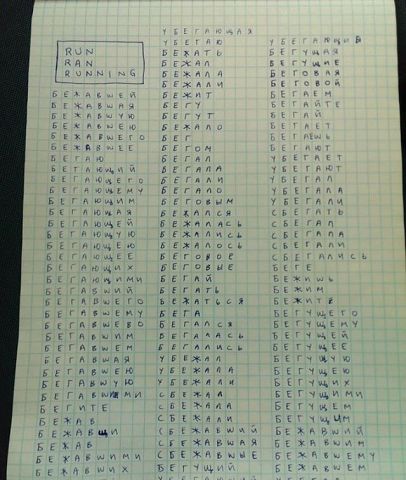 RUN
RAN
RUNNING
БЕЖАВШЕЙ
БЕЖАВШАЯ
БЕЖАВШУЮ
БЕЖАВШЕЮ
БЕЖАВШЕГО
БЕЖАВШЕЕ
БЕГАЮ
БЕГАЮЩИЙ
БЕГАЮЩЕГО
БЕГАЮЩЕМУ
БЕГАЮЩИМ
БЕГАЮЩАЯ
БЕГАЮЩЕЙ
БЕГАЮЩУЮ
БЕГАЮЩЕЮ
БЕГАЮЩЕЕ
БЕГАЮЩИХ
БЕГАЮЩИМИ
БЕГАВШИЙ
БЕГАВШЕГО
БЕГАВШЕМУ
БЕГАВШЕВО
БЕГАВШИМ
БЕГАВШЕМ
БЕГАВШАЯ
БЕГАВШЕЮ
БЕГАВШУЮ
БЕГАВШИМИ
БЕГИТЕ
БЕЖАВ
БЕЖАВЩИ
БЕЖАВ
БЕЖАВШИМИ
БЕЖАВШИХ
УБЕГАЮЩАЯ
УБЕГАЮ
БЕЖАТЬ
БЕЖАЛ
БЕЖАЛА
БЕЖАЛИ
БЕЖАТ
БЕГУ
БЕГУТ
БЕЖАЛО
БЕГ
БЕГОМ
БЕГАЛ
БЕГАЛА
БЕГАЛИ
БЕГАЛО
БЕГОВЫМ
БЕЖАЛСЯ
БЕЖАЛАСЬ
БЕЖАЛИСЬ
БЕЖАЛОСЬ
БЕГОВОЕ
БЕГОВЫЕ
БЕГАЙ
БЕГАТЬ
БЕЖАТЬСЯ
БЕГА
БЕГАЛСЯ
БЕГАЛАСЬ
БЕГАЛИСЬ
УБЕЖАЛ
УБЕЖАЛА
УБЕЖАЛИ
СБЕЖАЛ
СБЕЖАЛА
СБЕЖАЛИ
СБЕЖАВШИЙ
СБЕЖАВШАЯ
СБЕЖАВШЫЕ
БЕГУЩИЙ
УБЕГАЮЩИЙ
БЕГУЩАЯ
БЕГУЩИЕ
БЕГОВАЯ
БЕГОВОЙ
БЕГАЕМ
БЕГАЙТЕ
БЕГАЙ
БЕГАЕТ
БЕГАЕШЬ
БЕГАЮТ
УБЕГАЕТ
УБЕГАЮТ
УБЕГАЛ
УБЕГАЛА
УБЕГАЛИ
СБЕГАТЬ
СБЕГАЛ
СБЕГАЛА
СБЕГАЛИ
СБЕГАЛИСЬ
БЕГЕ
БЕЖИШЬ
БЕЖИМ
БЕЖИТЕ
БЕГУЩЕГО
БЕГУЩЕМУ
БЕГУЩЕЙ
БЕГУЩЕЕ
БЕГУЩУЮ
БЕГУЩЕЮ
БЕГУЩИХ
БЕГУЩИМИ
БЕГУЩЕМ
БЕГУЩИМ
БЕЖАВШИЙ
БЕЖАВШИМ
БЕЖАВШЕМУ
БЕЖАВШЕМ